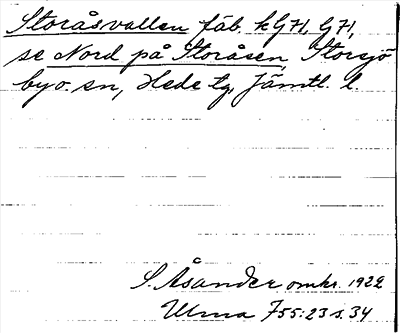 Storåsvallen fäb. k G71, G71,
se Nord på Storåsen, Storsjö
by o. sn, Hede tg, Jämtl. l.
S. Åsander omkr. 1922
Ulma 755:23 s. 34